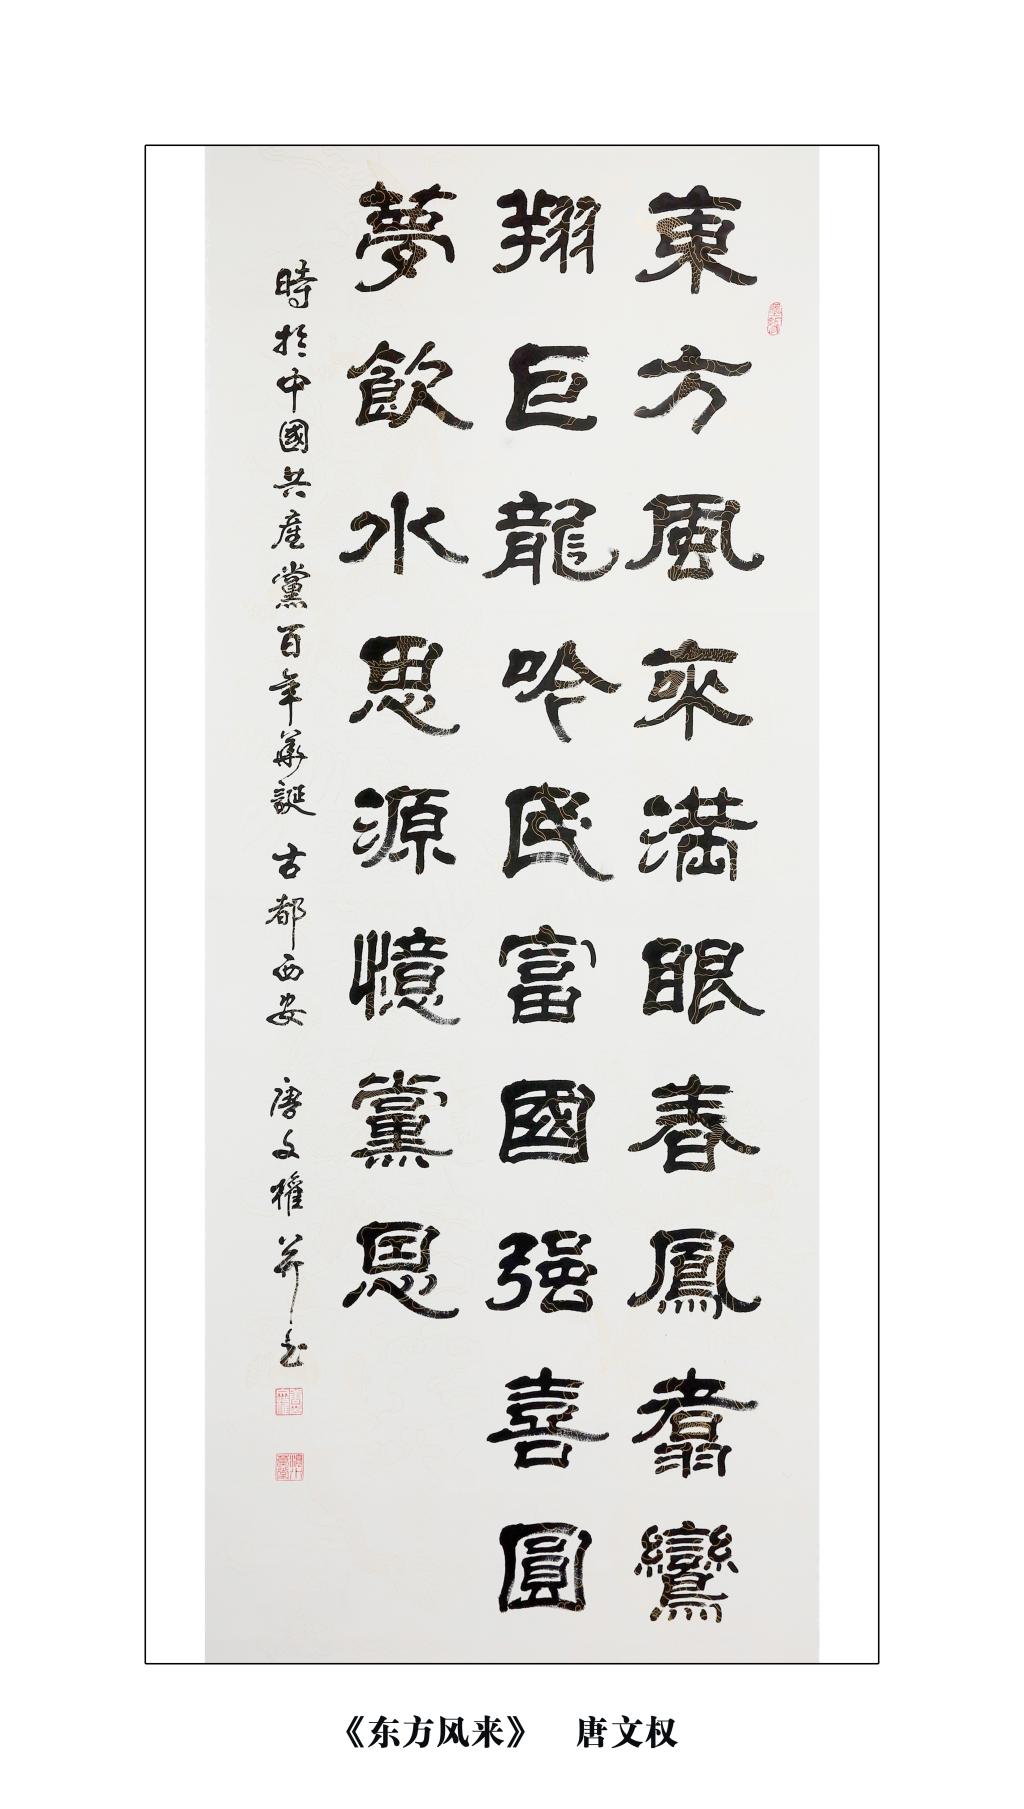 東方風来满眼春鳳翥鸞
翔巨龍吟民富國强喜圓
夢飲水思源憶黨恩
時於中國共產黨百年華誕 古都西安 唐文權并書
《东方风来》 唐文权